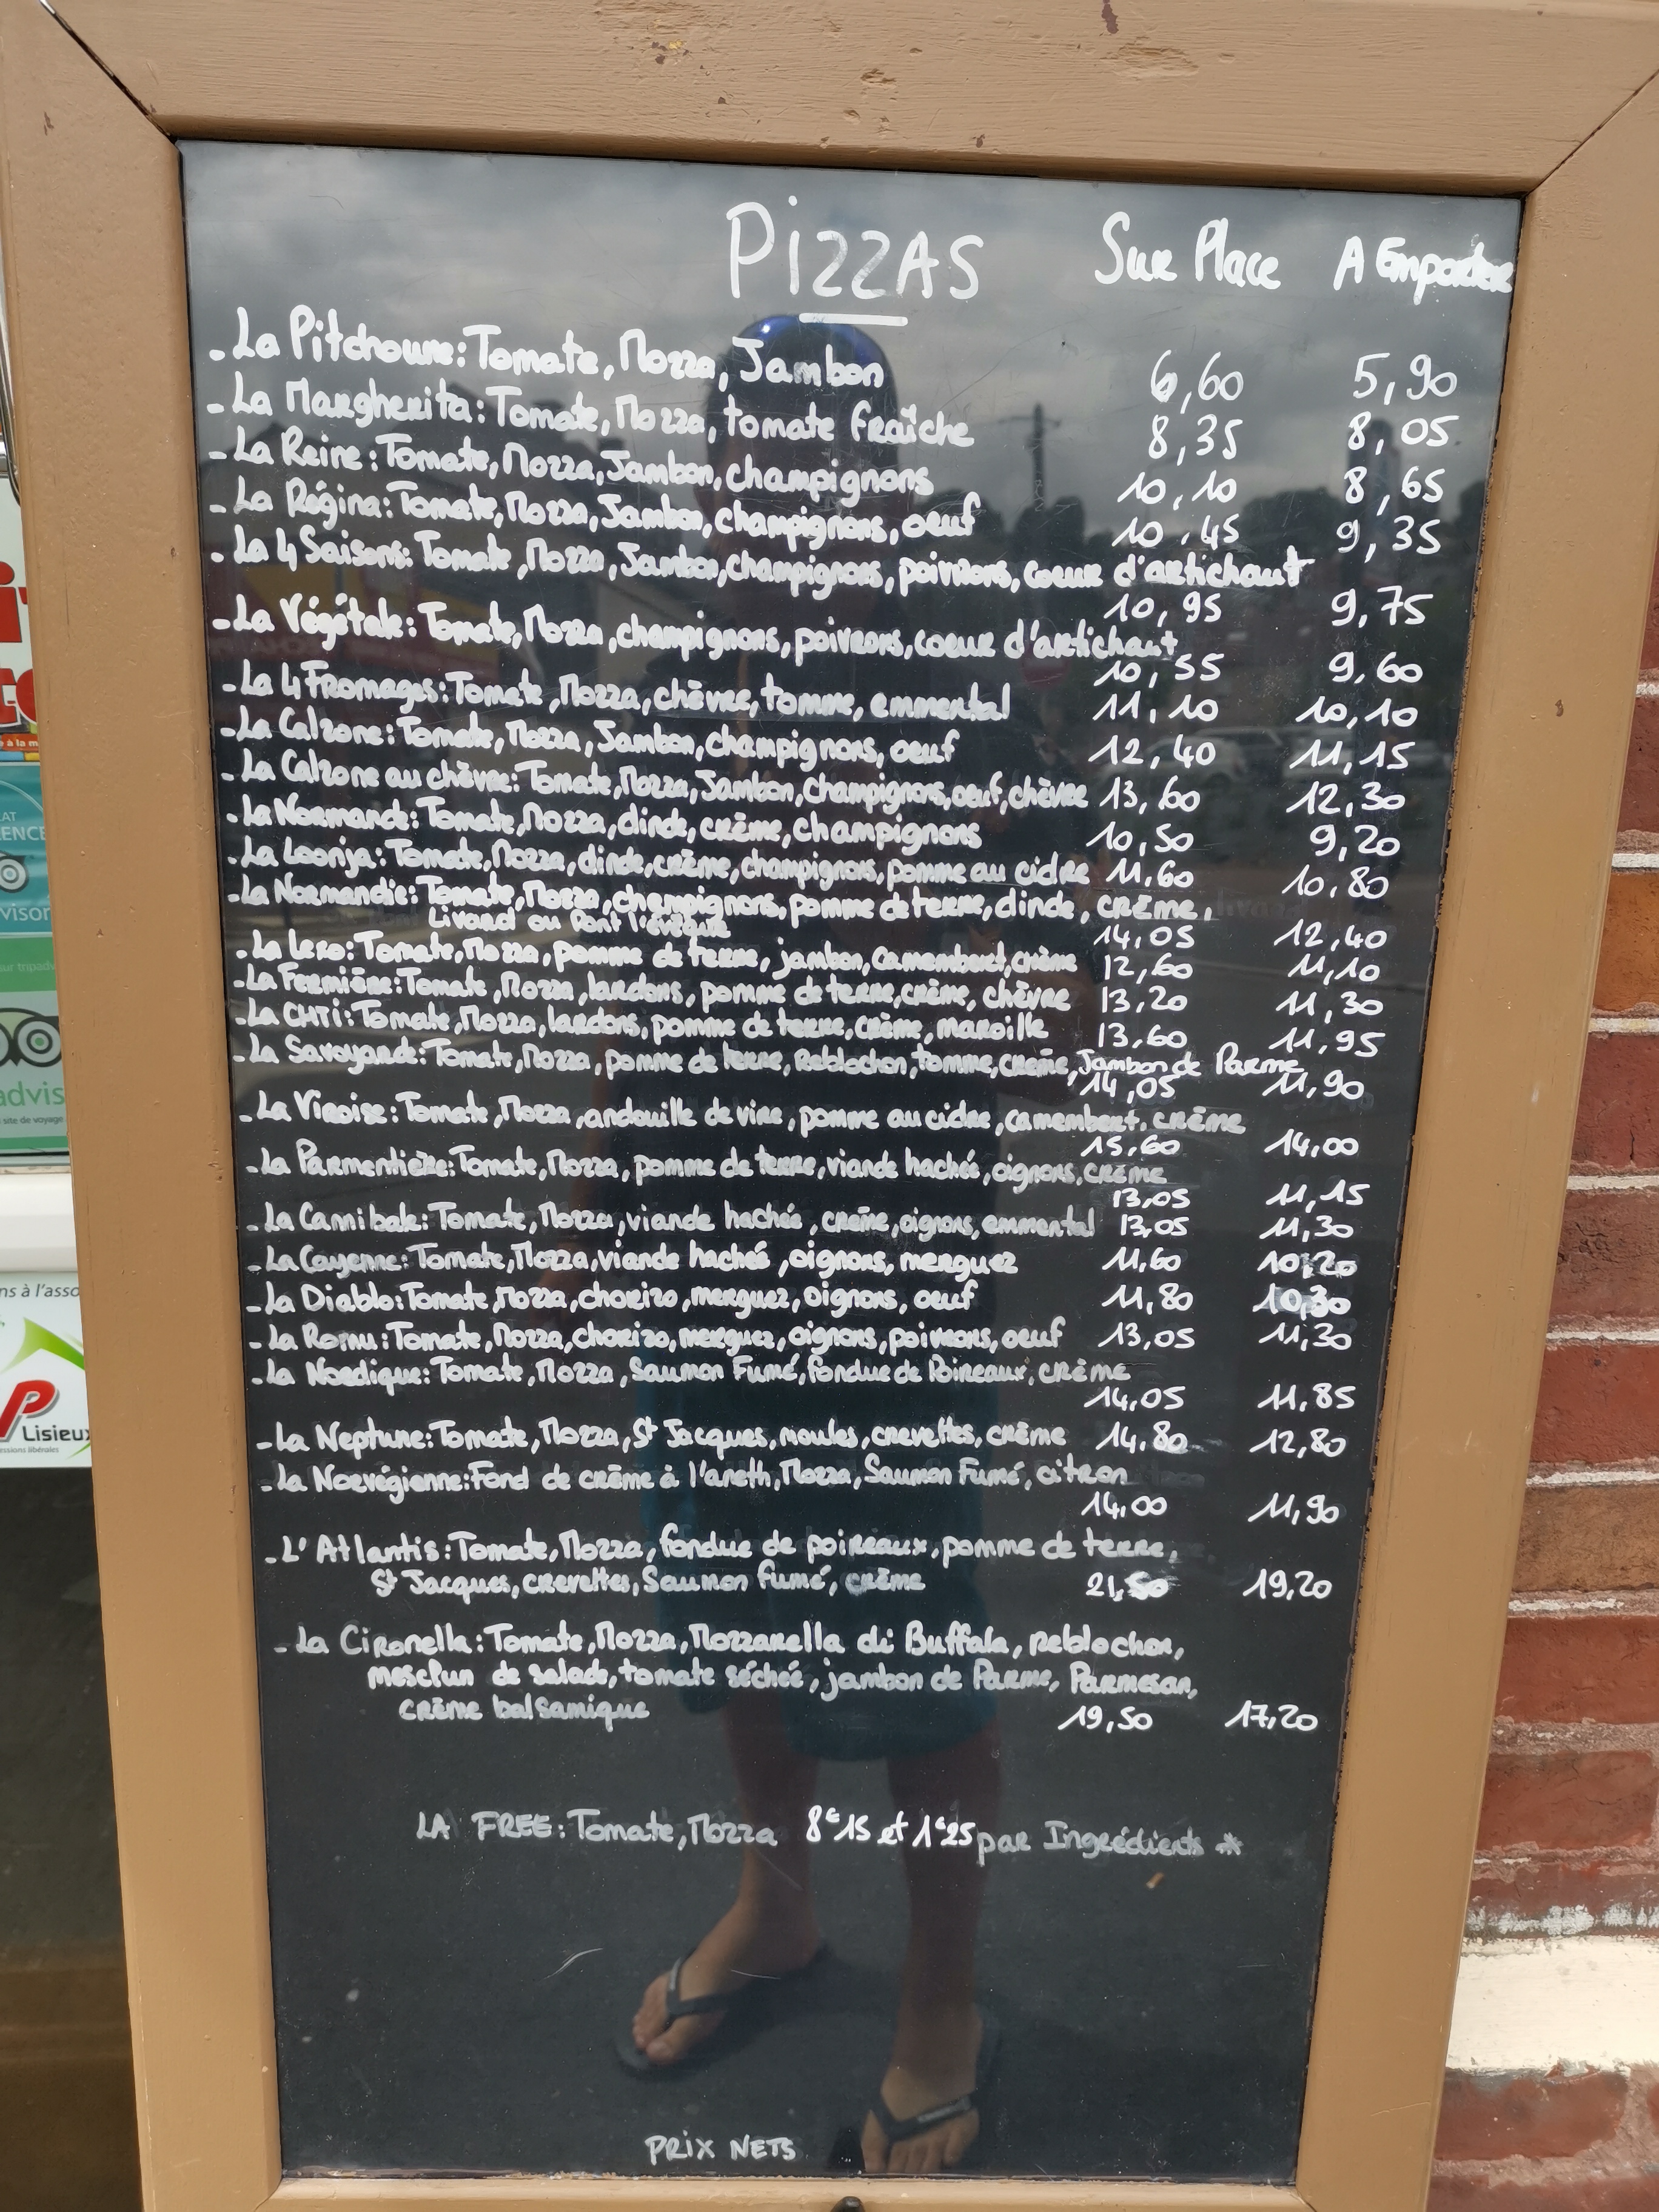 PIZZAS Sur Place A Emporter
- La Pitchoune: Tomate, Mozza, Jambon 6,60 5,90
- La Margherita: Tomate, Mozza, tomate fraîche 8,35 8,05
- La Reine: Tomate, Mozza, Jambon, champignons 10,10 8,65
- La Régina: Tomate, Mozza, Jambon, champignons, oeuf 10,45 9,35
- La 4 Saisons: Tomate, Mozza, Jambon, champignons, poivrons, coeur d'artichaut
10,95 9,75
- La Végétale: Tomate, Mozza, champignons, poivrons, coeur d'artichaut
10,55 9,60
- La 4 Fromages: Tomate, Mozza, chèvre, tomme, emmental 11,10 10,10
- La Calzone: Tomate, Mozza, Jambon, champignons, oeuf 12,40 11,15
- La Calzone au chèvre: Tomate, Mozza, Jambon, champignons, oeuf, chèvre 13,60 12,30
- La Normande: Tomate, Mozza, dinde, crème, champignons 10,50 9,20
- La Loonja: Tomate, Mozza, dinde, crème, champignons, pomme au cidre 11,60 10,80
- La Normandie: Tomate, Mozza, champignons, pomme de terre, dinde, crème,
Livarot ou Pont l'évêque 14,05 12,40
- La Lexo: Tomate, Mozza, pomme de terre, jambon, camembert, crème 12,60 11,10
- La Fermière: Tomate, Mozza, lardons, pomme de terre, crème, chèvre 13,20 11,30
- La CHTI: Tomate, Mozza, lardons, pomme de terre, crème, maroille 13,60 11,95
- La Savoyarde: Tomate, Mozza, pomme de terre, Reblochon, tomme, crème, Jambon de Parme
14,05 11,90
- La Viroise: Tomate, Mozza, andouille de vire, pomme au cidre, camembert, crème
15,60 14,00
- La Parmentière: Tomate, Mozza, pomme de terre, viande hachée, oignons, crème
13,05 11,15
- La Cannibale: Tomate, Mozza, viande hachée, crème, oignons, emmental 13,05 11,30
- La Cayenne: Tomate, Mozza, viande hachée, oignons, merguez 11,60 10,20
- La Diablo: Tomate, Mozza, chorizo, merguez, oignons, oeuf 11,80 10,30
- La Romu: Tomate, Mozza, chorizo, merguez, oignons, poivrons, oeuf 13,05 11,30
- La Nordique: Tomate, Mozza, Saumon Fumé, fondue de Poireaux, crème
14,05 11,85
- La Neptune: Tomate, Mozza, St Jacques, moules, crevettes, crème 14,80 12,80
- La Norvégienne: Fond de crème à l'aneth, Mozza, Saumon Fumé, citron
14,00 11,90
- L'Atlantis: Tomate, Mozza, fondue de poireaux, pomme de terre,
St Jacques, crevettes, Saumon fumé, crème 21,50 19,20
- La Cironella: Tomate, Mozza, Mozzarella di Buffala, reblochon,
mesclun de salade, tomate séchée, jambon de Parme, Parmesan,
crème balsamique 19,50 17,20
LA FREE: Tomate, Mozza 8€15 et 1€25 par Ingrédients *
PRIX NETS
Lisieux